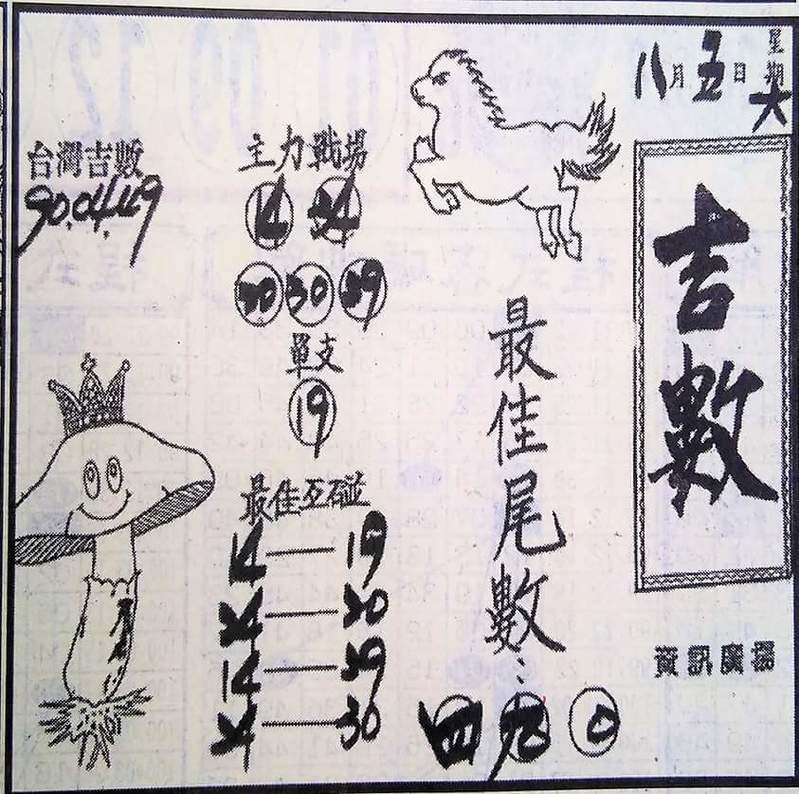 八月五日
星期六
吉數
資訊廣場
最佳尾數：
四 0
主力戰場
14 34
30 39
單支
19
最佳互碰
14—19
14—39
34—30
台灣吉數
90.04.49